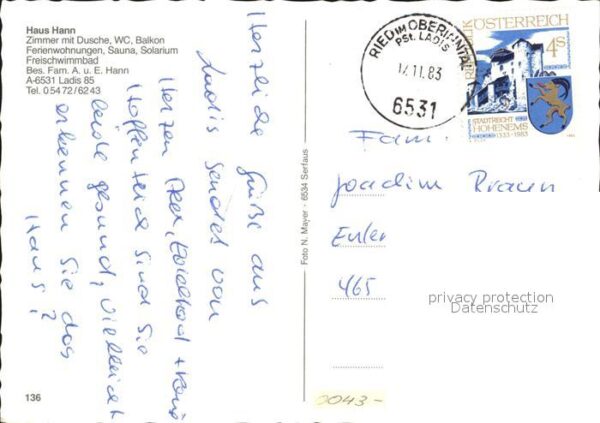 Haus Hann
Zimmer mit Dusche, WC, Balkon
Ferienwohnungen, Sauna, Solarium
Freischwimmbad
Bes. Fam. A. u. E. Hann
A-6531 Ladis 85
Tel. 0 54 72 / 62 43
Herzliche
Grüße aus
Ladis sendet von
Herzen
Hoffentlich sind Sie
beide gesund, vielleicht
erkennen Sie das
Haus?
136
Foto N. Mayer · 6534 Serfaus
RIED IM OBERINNTAL
Pst. LADIS
11.83
6531
REPUBLIK ÖSTERREICH
4S
STADTRECHT
HOHENEMS
1333-1983
Fam.
Joachim Braun
465
privacy protection
Datenschutz
0043-